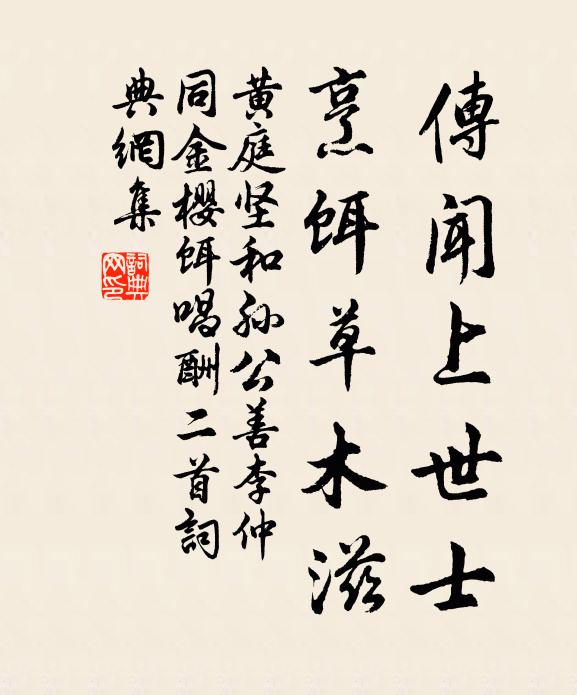 傳聞上世士
烹餌草木滋
黃庭坚和孙公善李仲
同金櫻餌唱酬二首詞
典網集
詞典网印